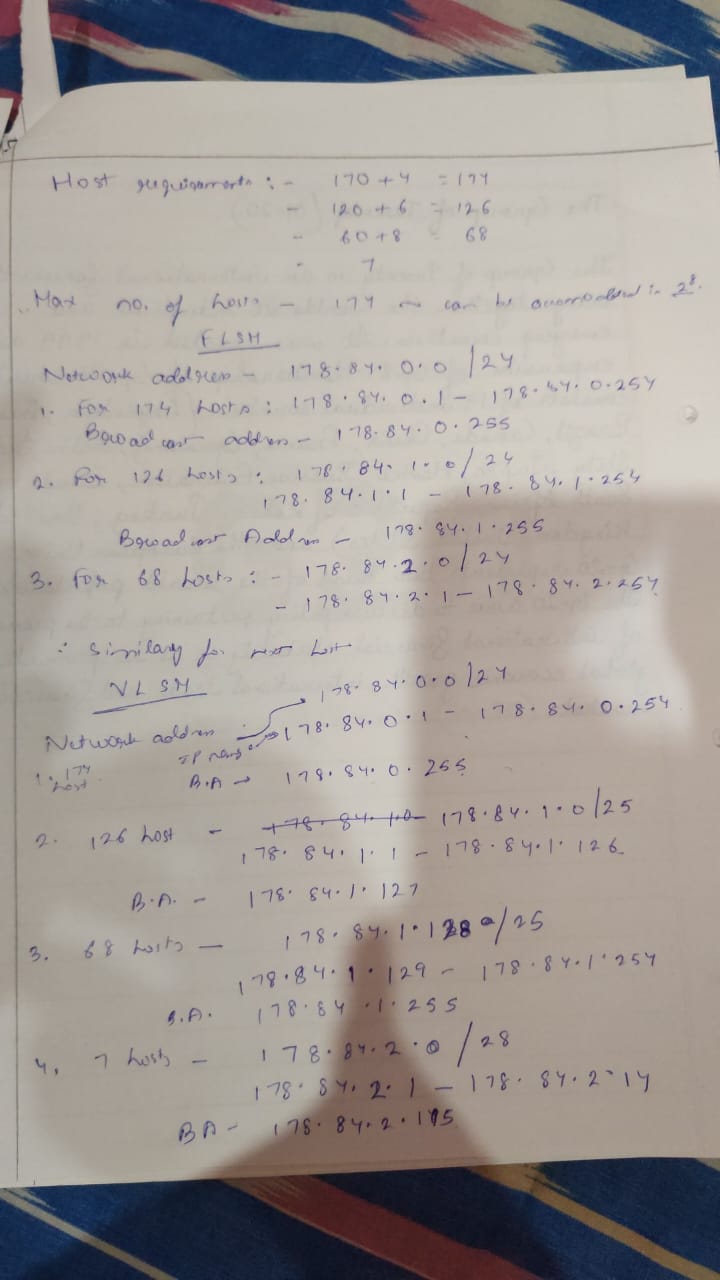 Host requirements :- 170 + 4 = 174
- 120 + 6 = 126
- 60 + 8 = 68
- 7
Max no. of hosts - 174 can be accomodated in 2^8.
FLSM
Network address - 178.84.0.0 /24
1. For 174 hosts : 178.84.0.1 - 178.84.0.254
Broadcast address - 178.84.0.255
2. For 126 hosts : 178.84.1.0/24
178.84.1.1 - 178.84.1.254
Broadcast Address - 178.84.1.255
3. For 68 hosts :- 178.84.2.0/24
- 178.84.2.1 - 178.84.2.254
∴ Similary for next host
VLSM
Network address 178.84.0.0/24
IP range 178.84.0.1 - 178.84.0.254
1. 174 host B.A → 178.84.0.255
2. 126 host - 178.84.1.0 178.84.1.0/25
178.84.1.1 - 178.84.1.126
B.A. - 178.84.1.127
3. 68 hosts - 178.84.1.128/25
178.84.1.129 - 178.84.1.254
B.A. 178.84.1.255
4. 7 hosts - 178.84.2.0 /28
178.84.2.1 - 178.84.2.14
BA - 178.84.2.15